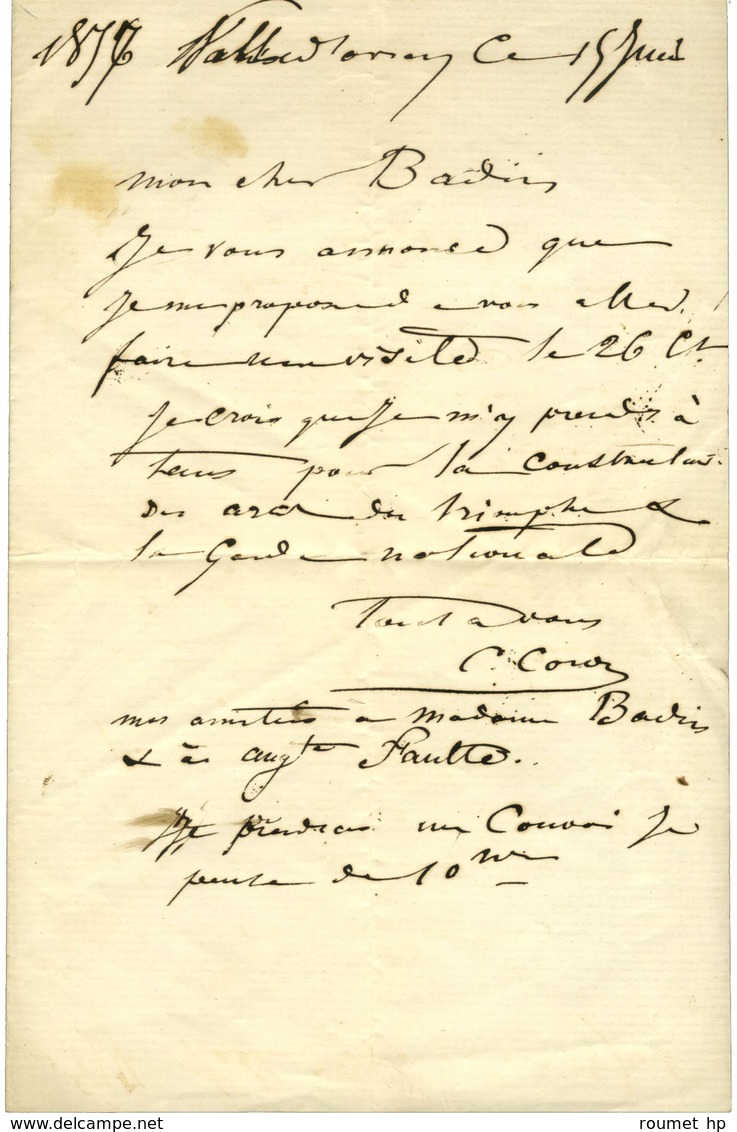 1857 Ville d'avray Ce 15 Juin
mon cher Badin
Je vous annonce que
Je me propose de vous aller
faire une visite le 26 Ct.
Je crois que Je m'y prends à
tems pour la construction
des arcs de triomphe &
la Garde nationale
Tout a vous
C. Corot
mes amitiés a madame Badin
& à augte Faulte.
Je prendrai un Convoi Je
pense de 10 h
roumet hp